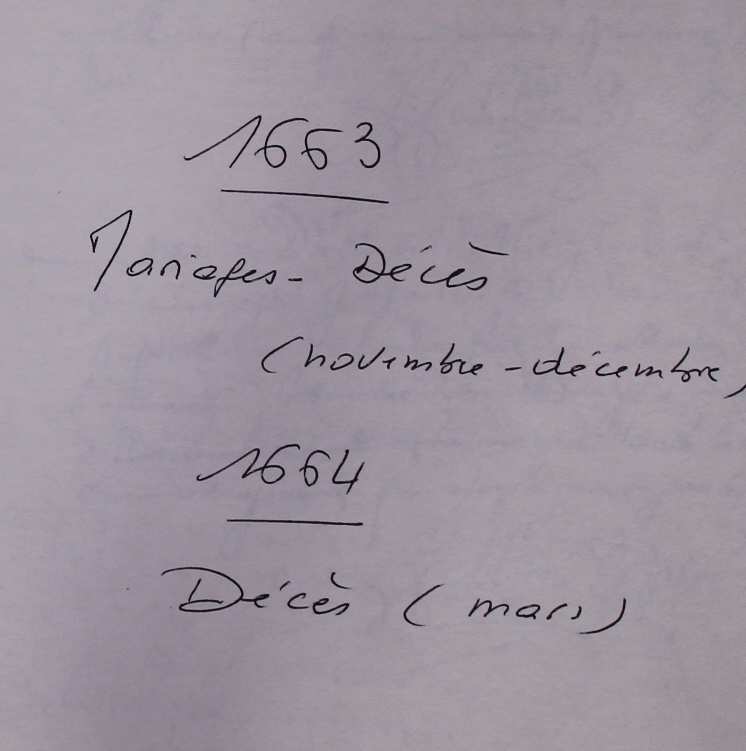 1663
Mariages - Décès
(novembre - décembre)
1664
Décès (mars)